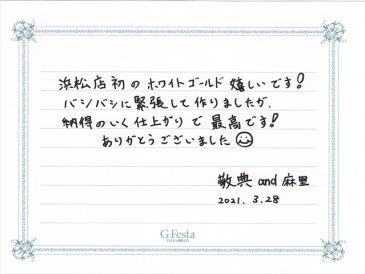 浜松店初のホワイトゴールド嬉しいです!
バシバシに緊張して作りましたが、
納得のいく仕上がりで最高です!
ありがとうございました
敬典 and 麻里
2021. 3. 28
G.Festa